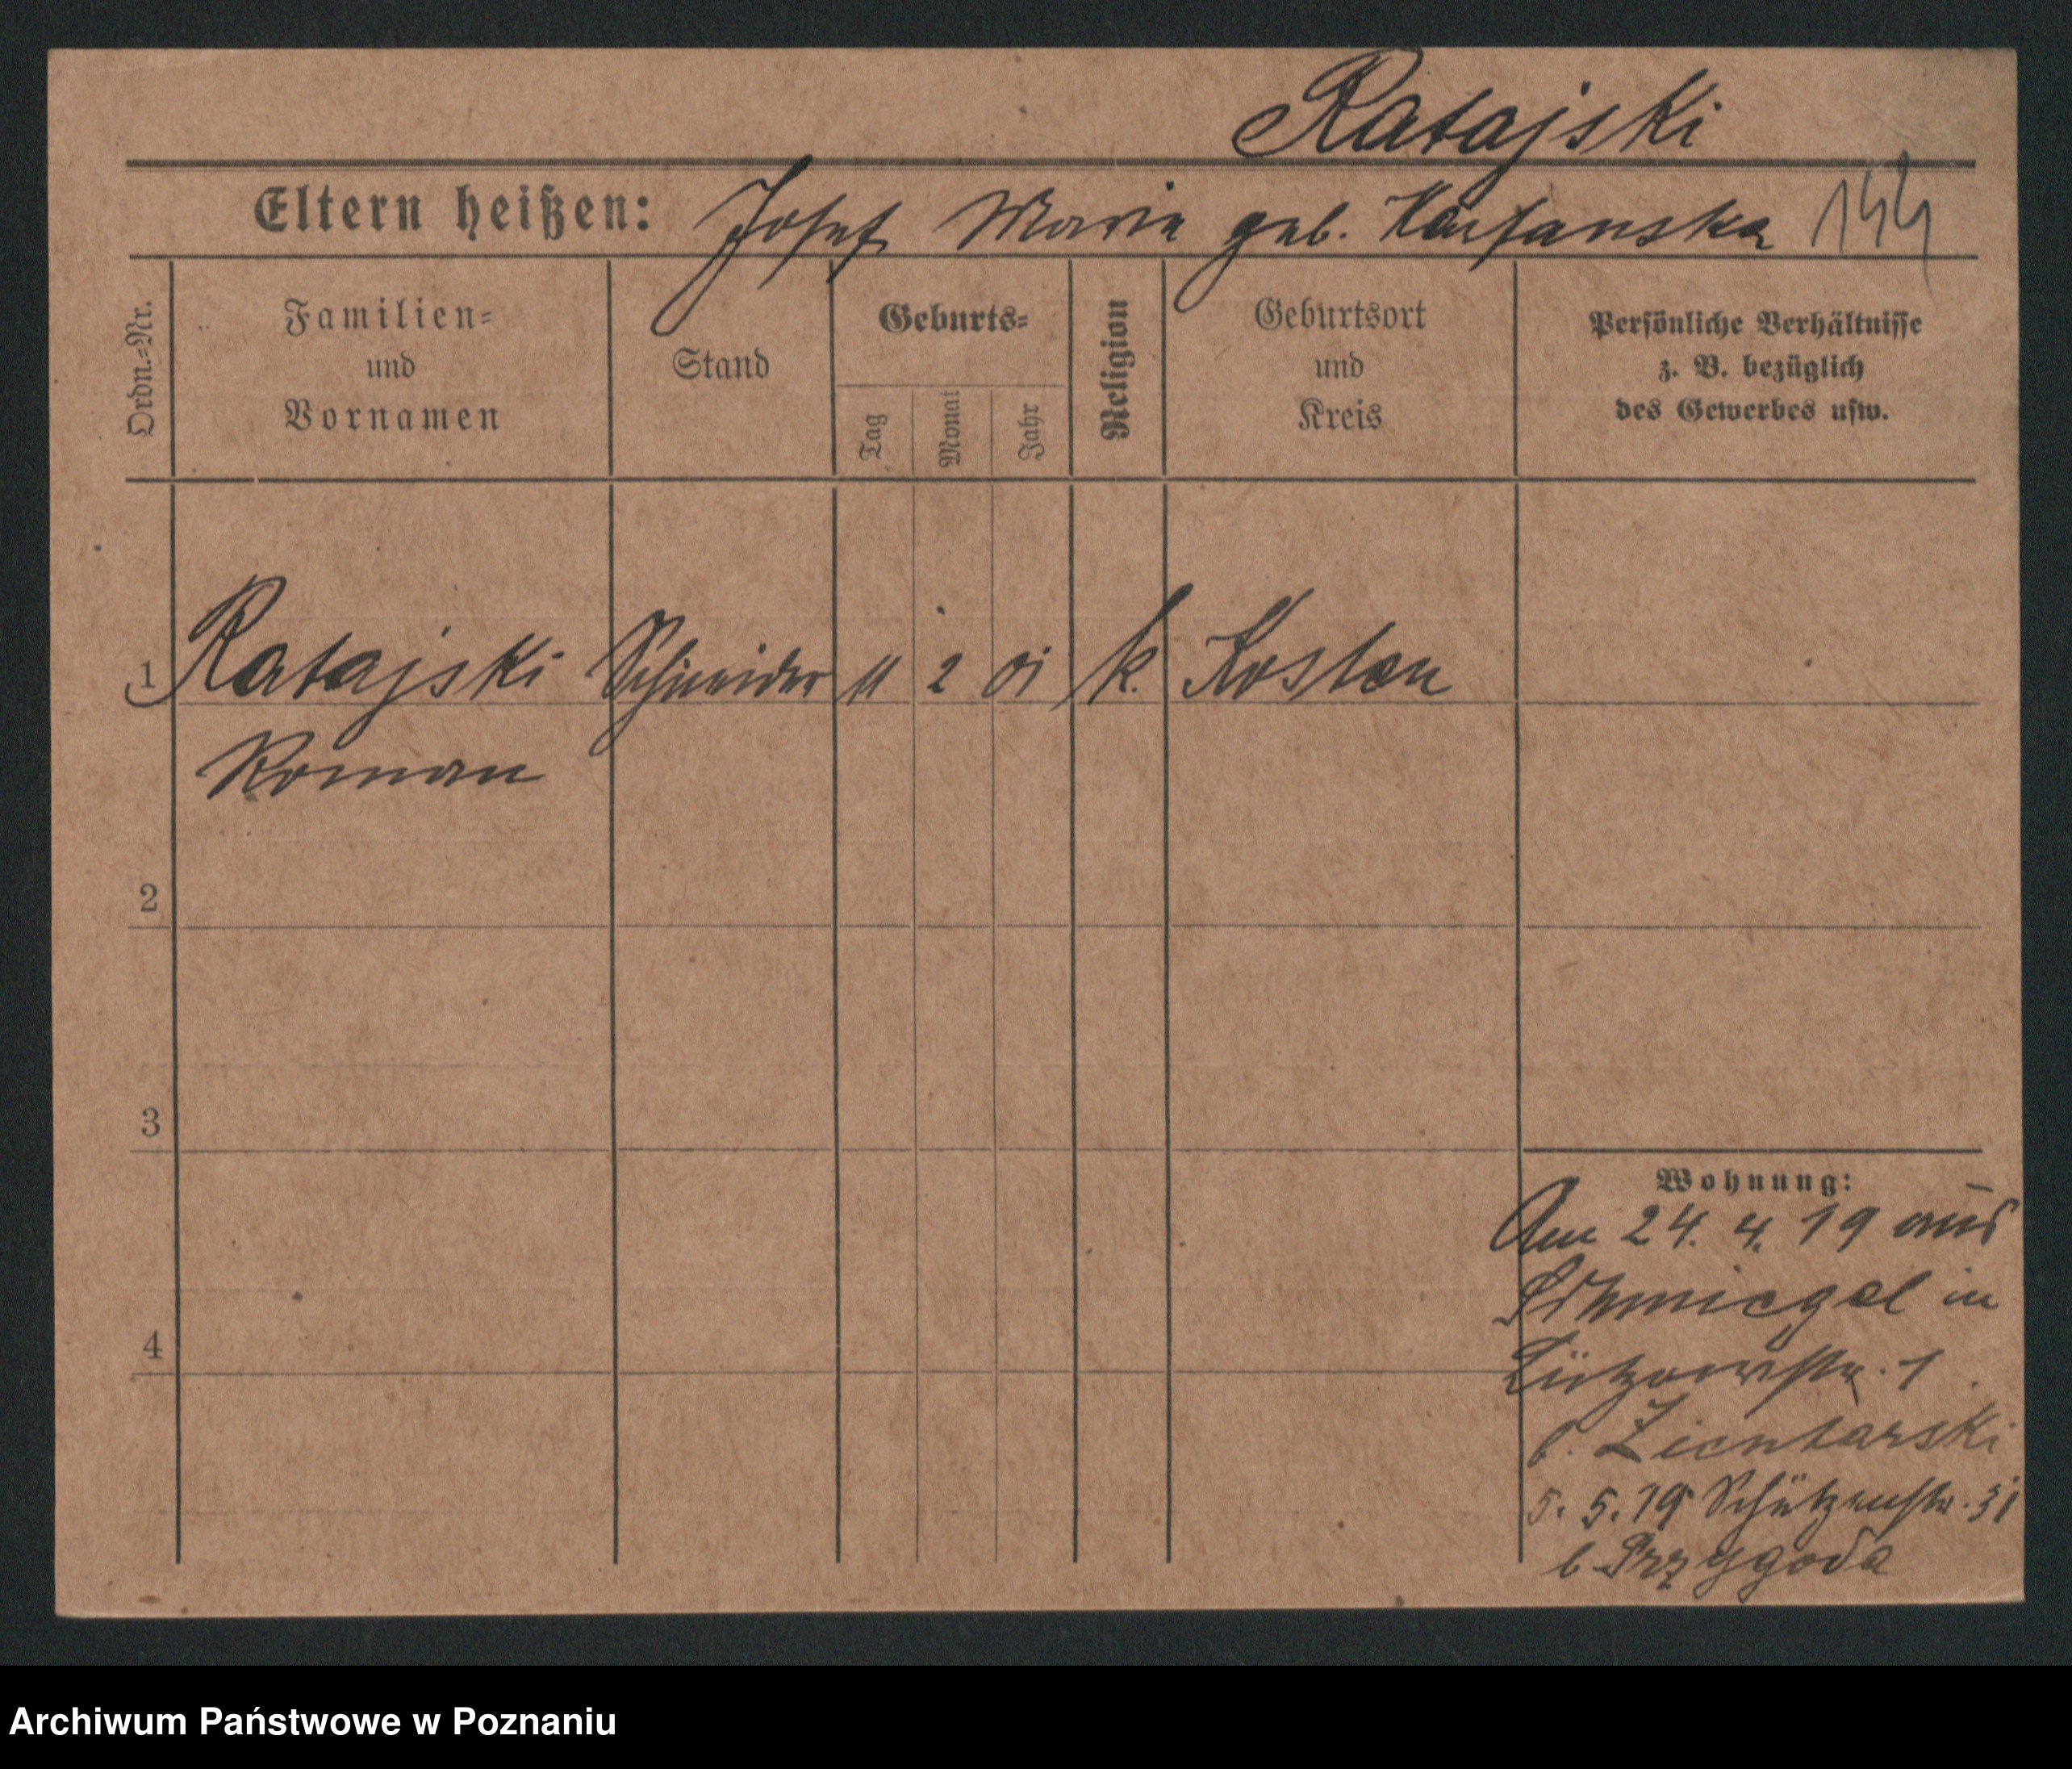 Ratajski
Eltern heißen: Josef Maria geb. 144
Ordn.-Nr.
Familien-
und
Vornamen
Stand
Geburts-
Tag
Monat
Jahr
Religion
Geburtsort
und
Kreis
Persönliche Verhältnisse
z. B. bezüglich
des Gewerbes usw.
1 Ratajski Schneider 11 2 01 k. Kosten
Roman
2
3
4
Wohnung:
Am 24. 4. 19 aus
Schmiegel in
Lützowstr. 1
b. Zientarski
5. 5. 19 Schützenstr. 31
b Przygoda
Archiwum Państwowe w Poznaniu